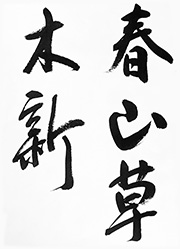 春山草
木新